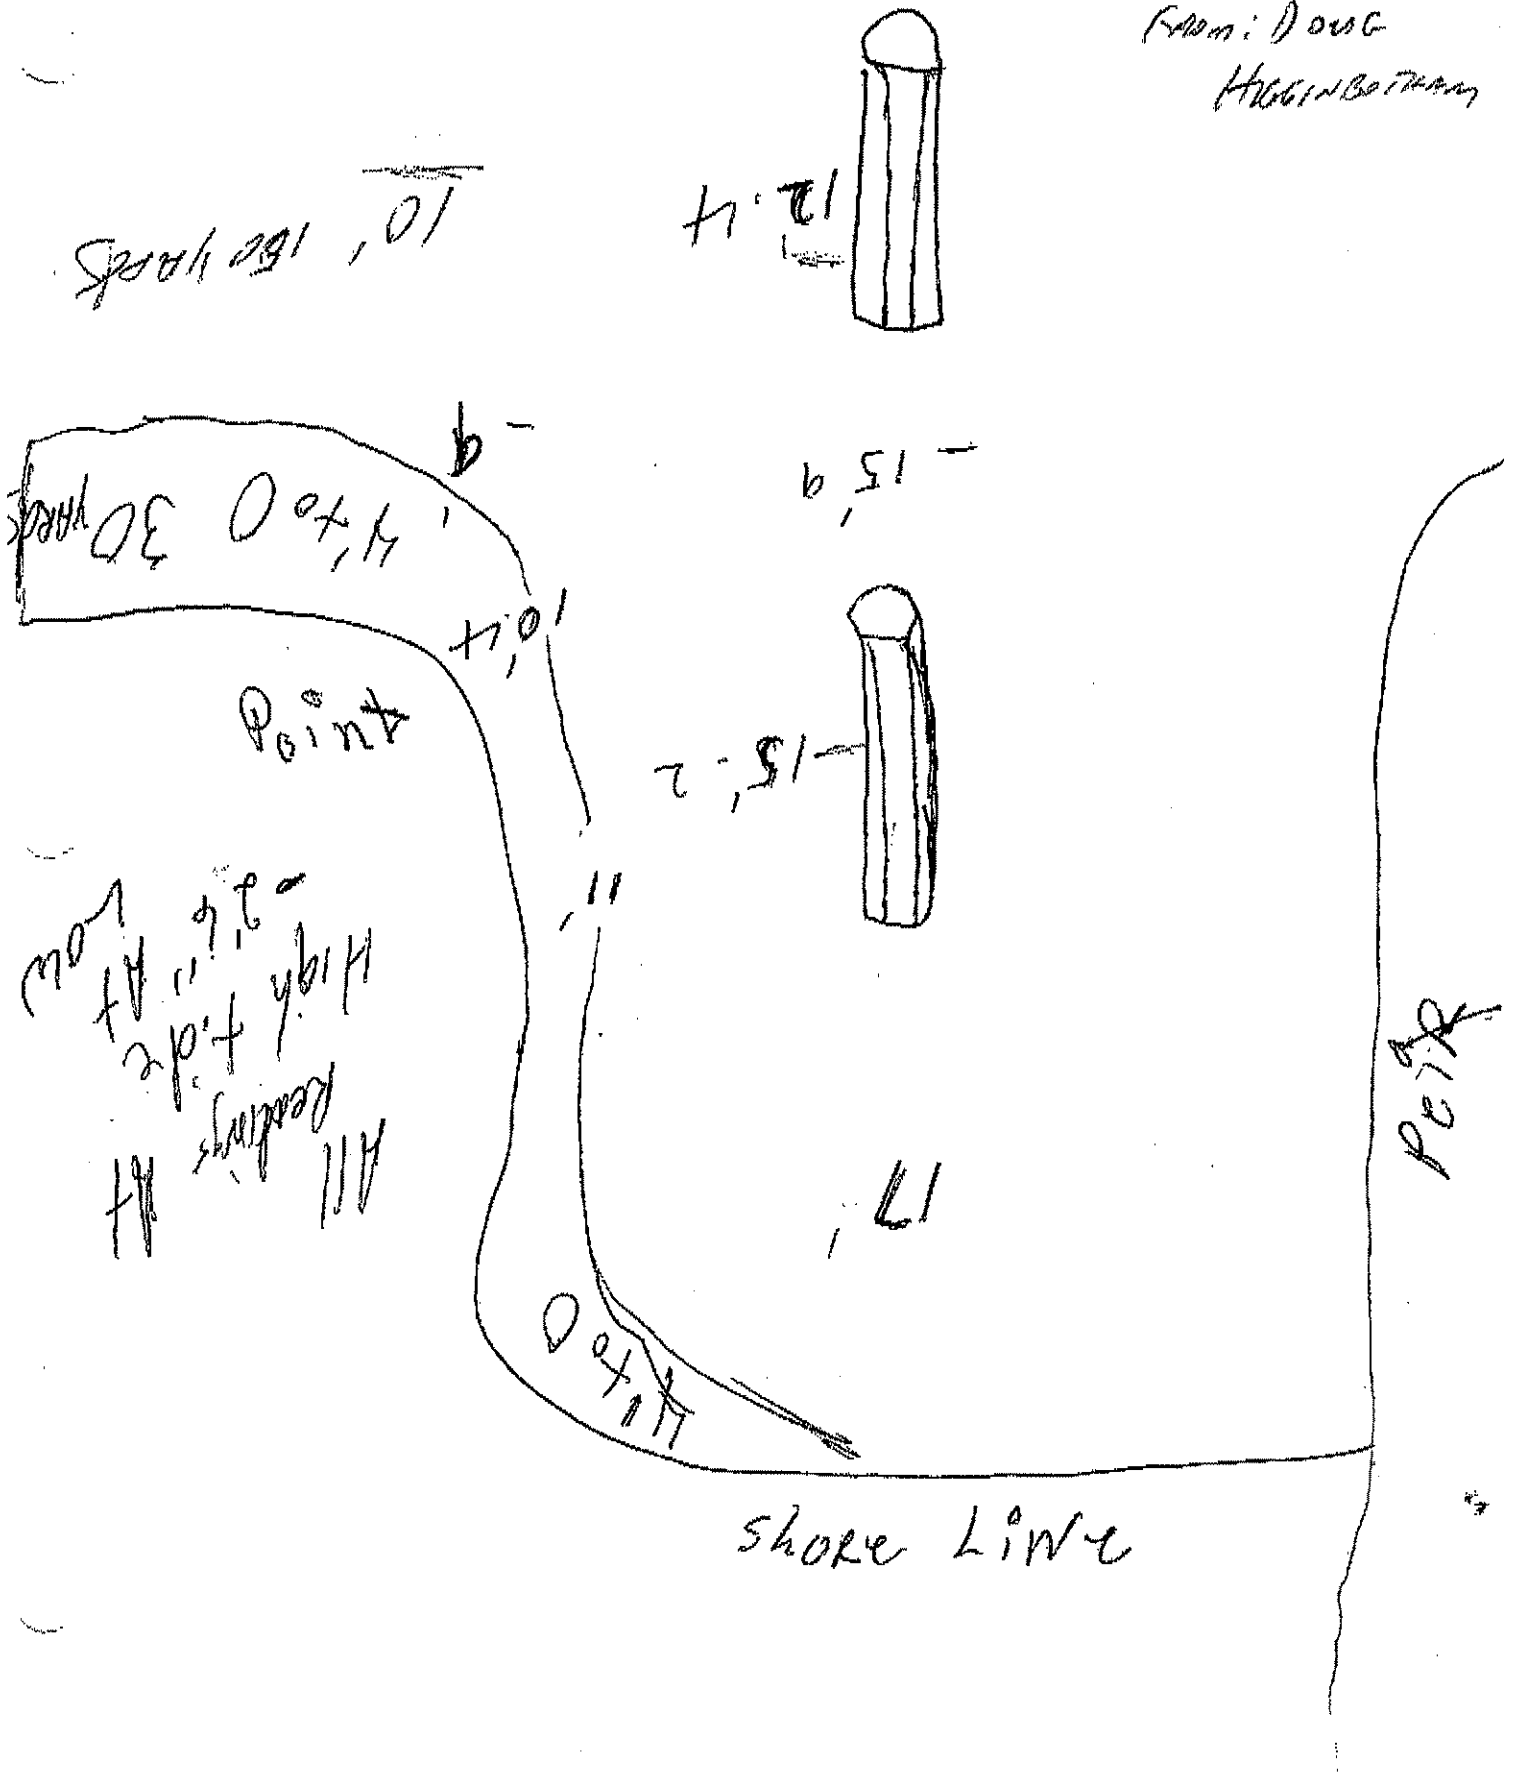 From: Doug
Higginbotham
12.4
10', 150 yards
- 9'
- 15'9
4' to 0 30 yards
10'4
Point
- 15'-2
11'
All Readings At
High tide
At Low
17'
Peir
4' to 0
Shore Line